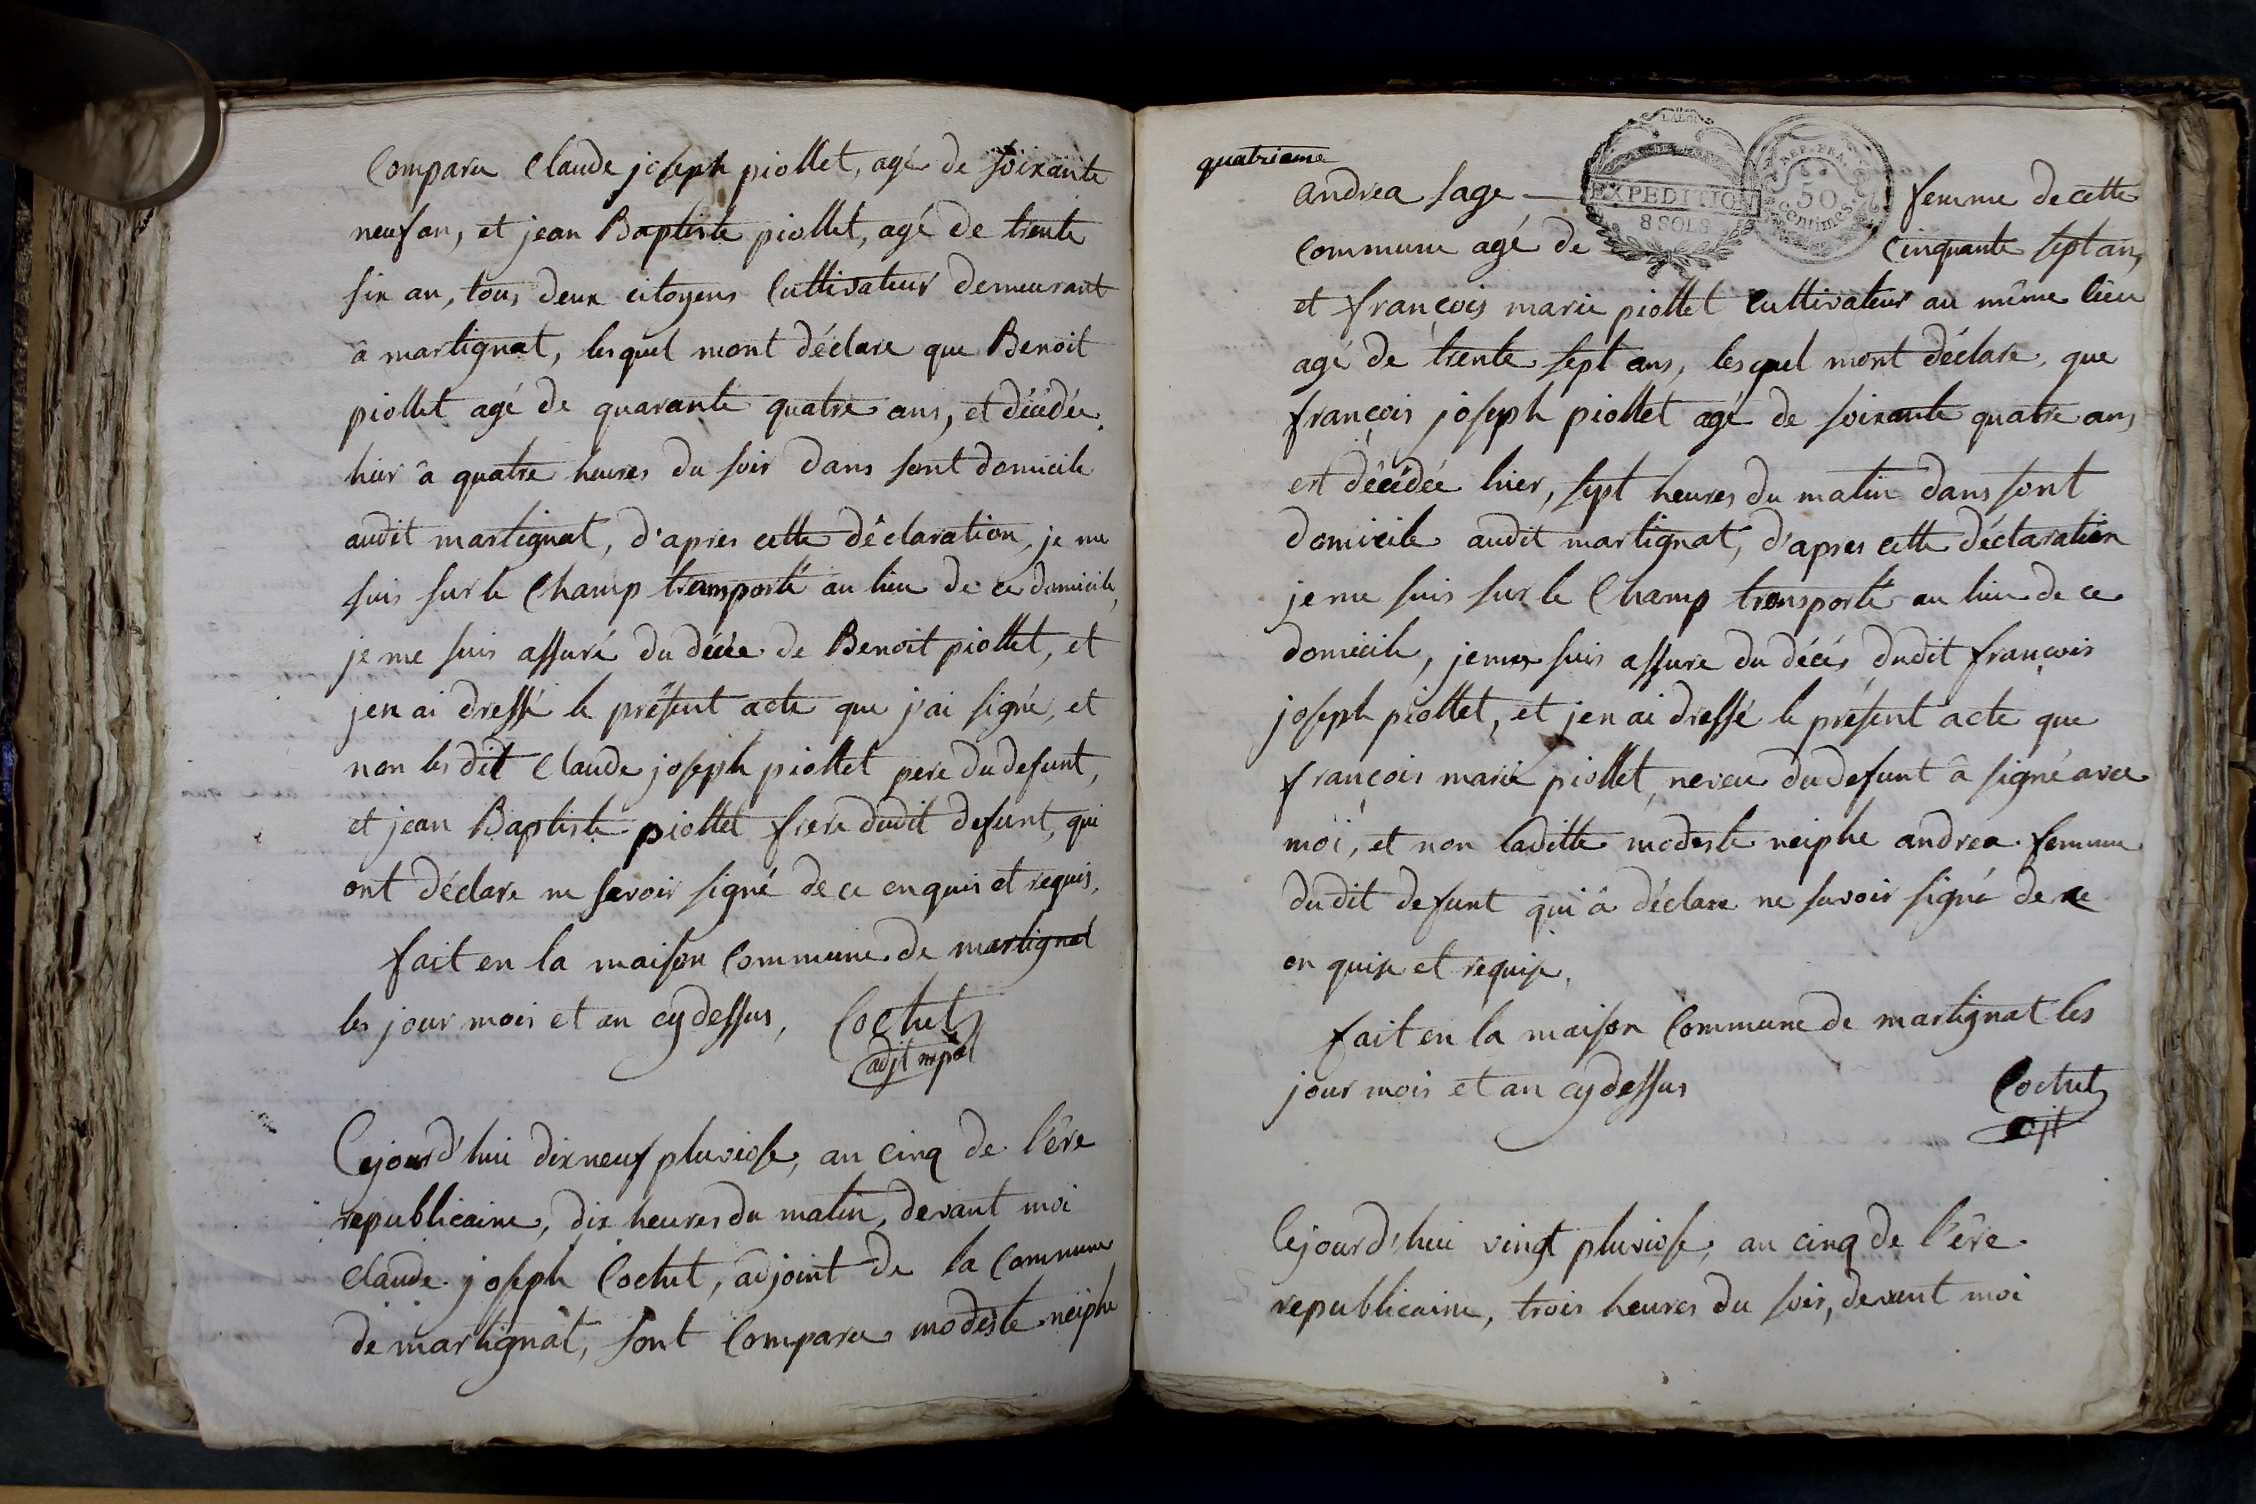 Comparu Claude joseph piollet, agé de soixante
neuf an, et jean Baptiste piollet, agé de trente
six an, tous deux citoyens Cultivateur demeurant
â martignat, lesquel mont déclare que Benoit
piollet agé de quarante quatre ans, et décédée
hier â quatre heures du soir dans sont domicile
audit martignat, d'apres cette déclaration, je me
suis sur le Champ transporté au lieu de ce domicile,
je me suis assuré du décée de Benoit piollet, et
jen ai dressé le présent acte que j'ai signé, et
non lesdit Claude joseph piollet pere du defunt,
et jean Baptiste piollet frere dudit defunt, qui
ont déclare ne savoir signé de ce enquis et requis,
fait en la maison Commune de martignat
les jour mois et an cydessus, Cochet
adjt mpal
Cejourd'hui dixneuf pluviose, an cinq de l'êre
republicaine, dix heures du matin, devant moi
Claude joseph Cochet, adjoint de la Commune
de martignat, sont Comparu modeste neiphe
quatrieme
andrea sage — femme de cette
EXPEDITION
8 SOLS
REP. FRA.
50
Centimes
Commune agé de Cinquante sept an,
et françois marie piollet Cultivateur au même lieu
agé de trente sept ans, lesquel mont déclare, que
françois joseph piollet agé de soixante quatre ans
est décédée hier, sept heures du matin dans sont
domicile audit martignat, d'apres cette déclaration
je me suis sur le Champ transporté au lieu de ce
domicile, jemes suis assure du décés dudit françois
joseph piollet, et jen ai dressé le présent acte que
françois marie piollet, neveu du defunt â signé avec
moi, et non laditte modeste neiphe andrea femme
dudit defunt qui â déclare ne savoir signé de ce
en quise et requise,
fait en la maison Commune de martignat les
jour mois et an cydessus Cochet
adjt
Cejourd'hui vingt pluviose, an cinq de l'êre
republicaine, trois heures du soir, devant moi